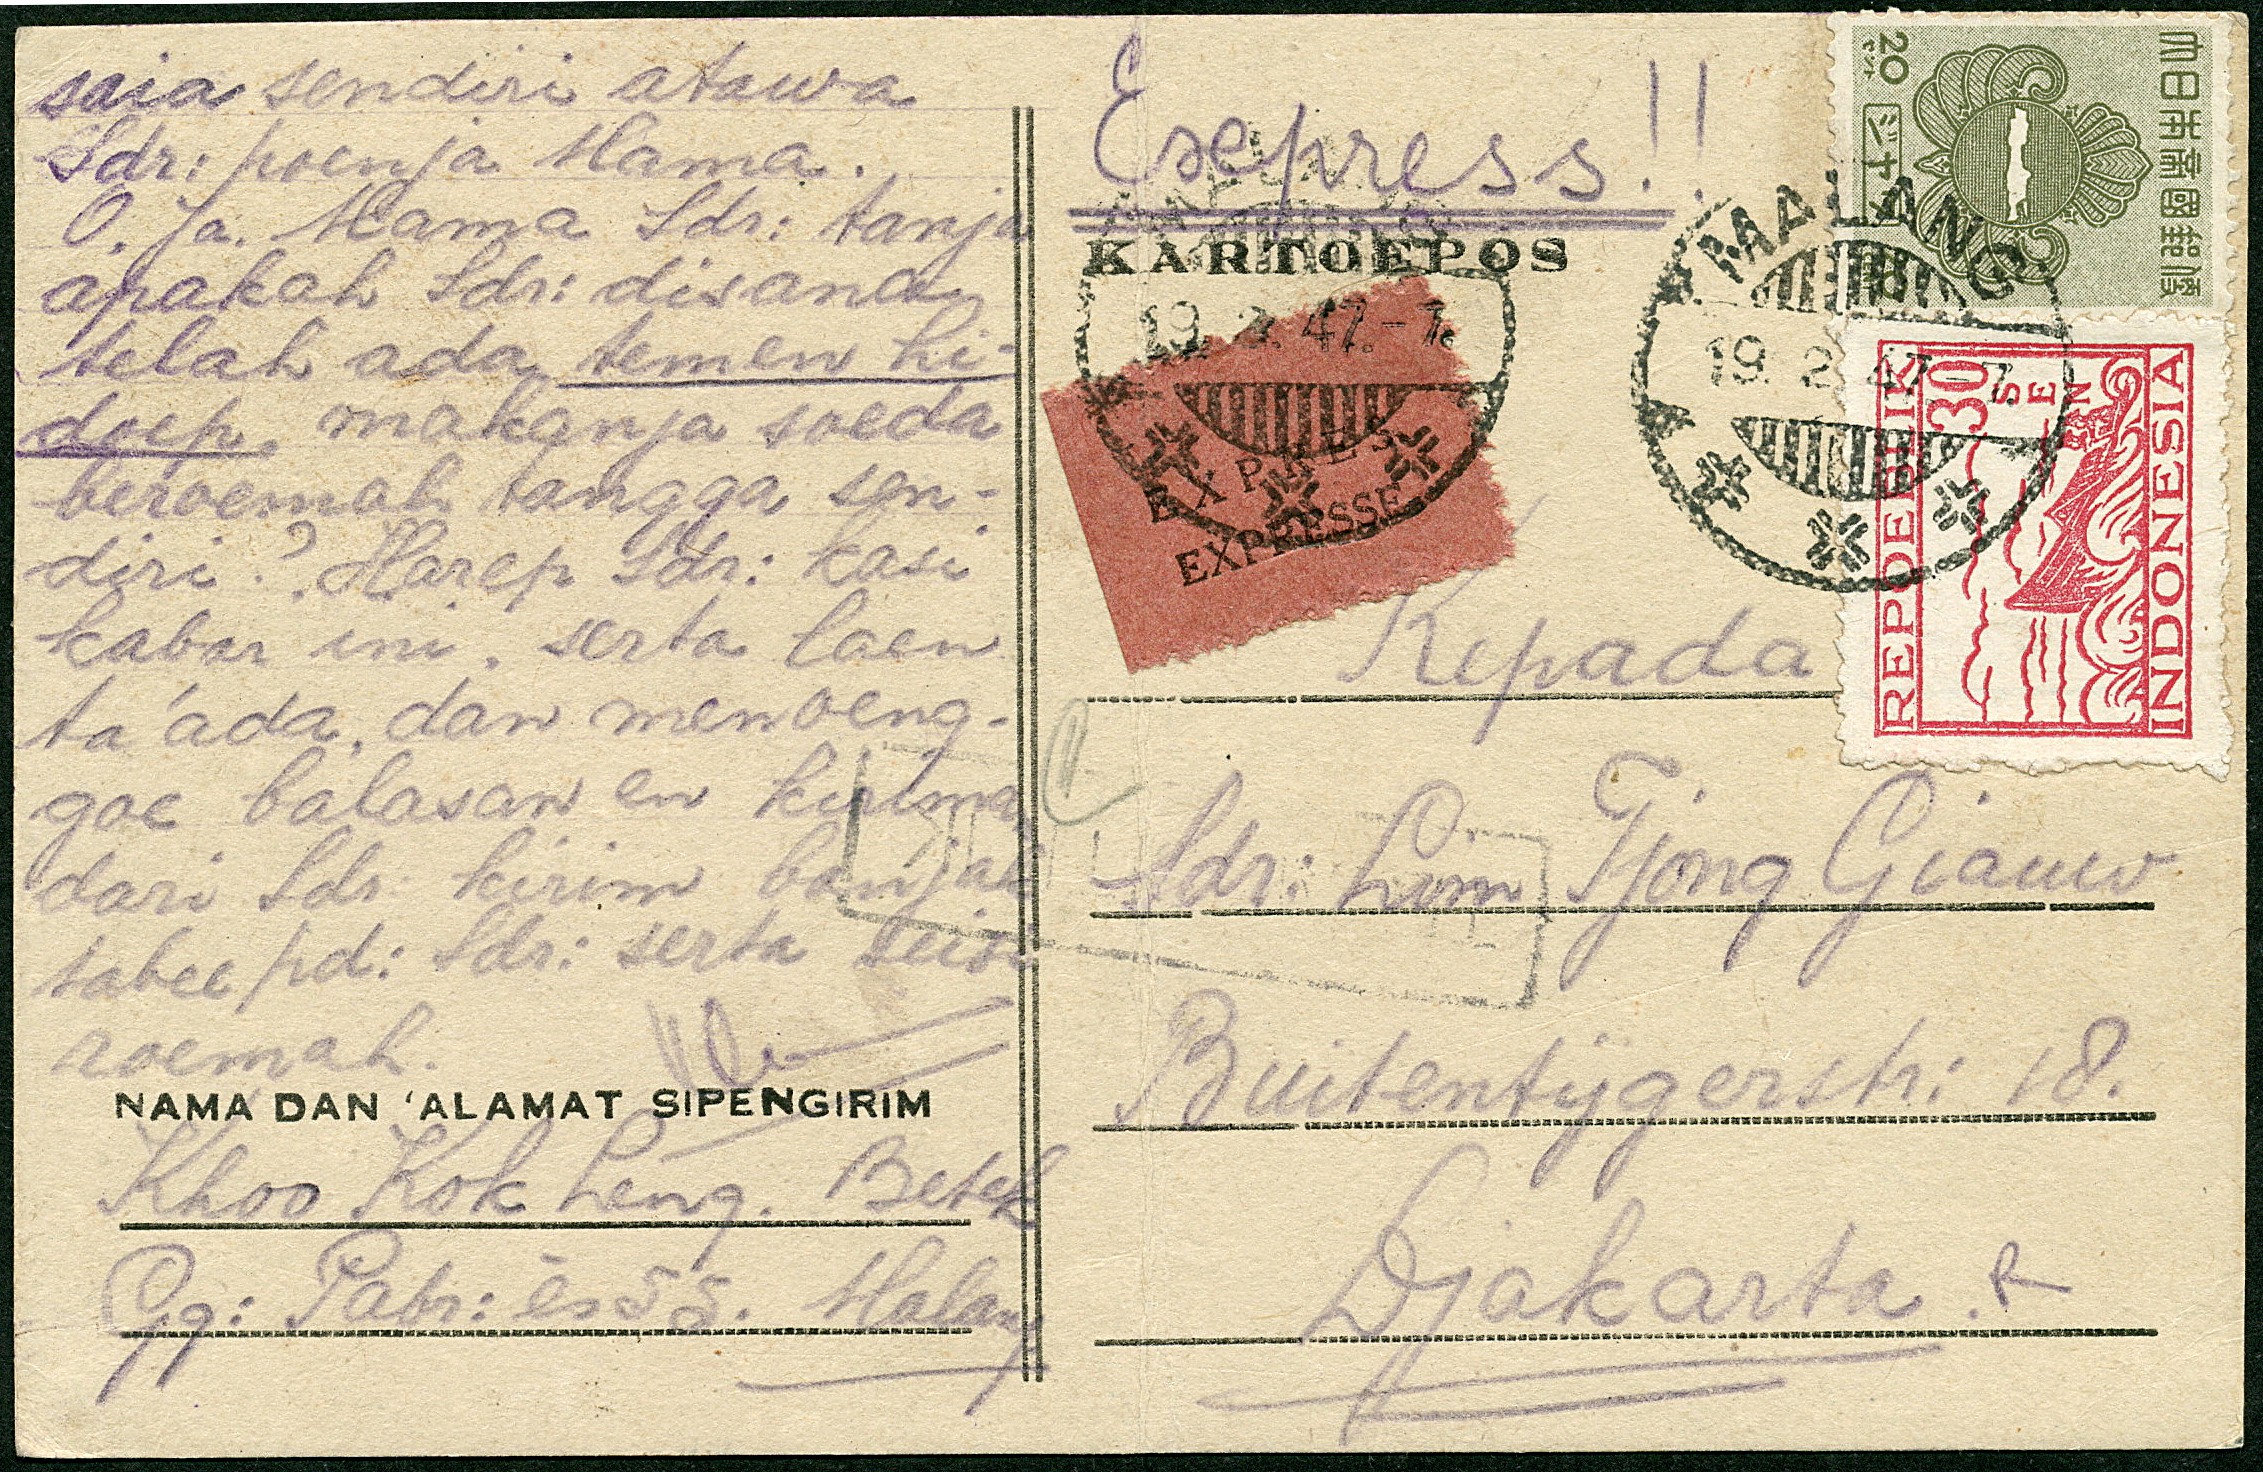 saia sendiri atawa
Sdr: poenja Mama.
O, Ja. Mama Sdr: tanja
apakah Sdr: disana
telah ada temen hi-
doep, makanja soeda
beroemah tangga sen-
diri? Harep Sdr: kasi
kabar ini, serta laen
ta'ada, dan menoeng-
goe balasan en kirima
dari Sdr kirim banjak
tabee pd: Sdr: serta seisi
roemah.
NAMA DAN 'ALAMAT SIPENGIRIM
Khoo Kok Leng. Betek
Gg: Pabr: ès 55. Malang
Exepress!!
KARTOEPOS
MALANG
19. 2. 47.-7.
EXPRES
EXPRESSE
MALANG
19. 2. 47-7.
20
ジャワ
大日本帝國郵便
30
SEN
REPOEBLIK
INDONESIA
Kepada
Sdr: Lim Tjong Giauw
Buitentijgerstr: 18.
Djakarta.